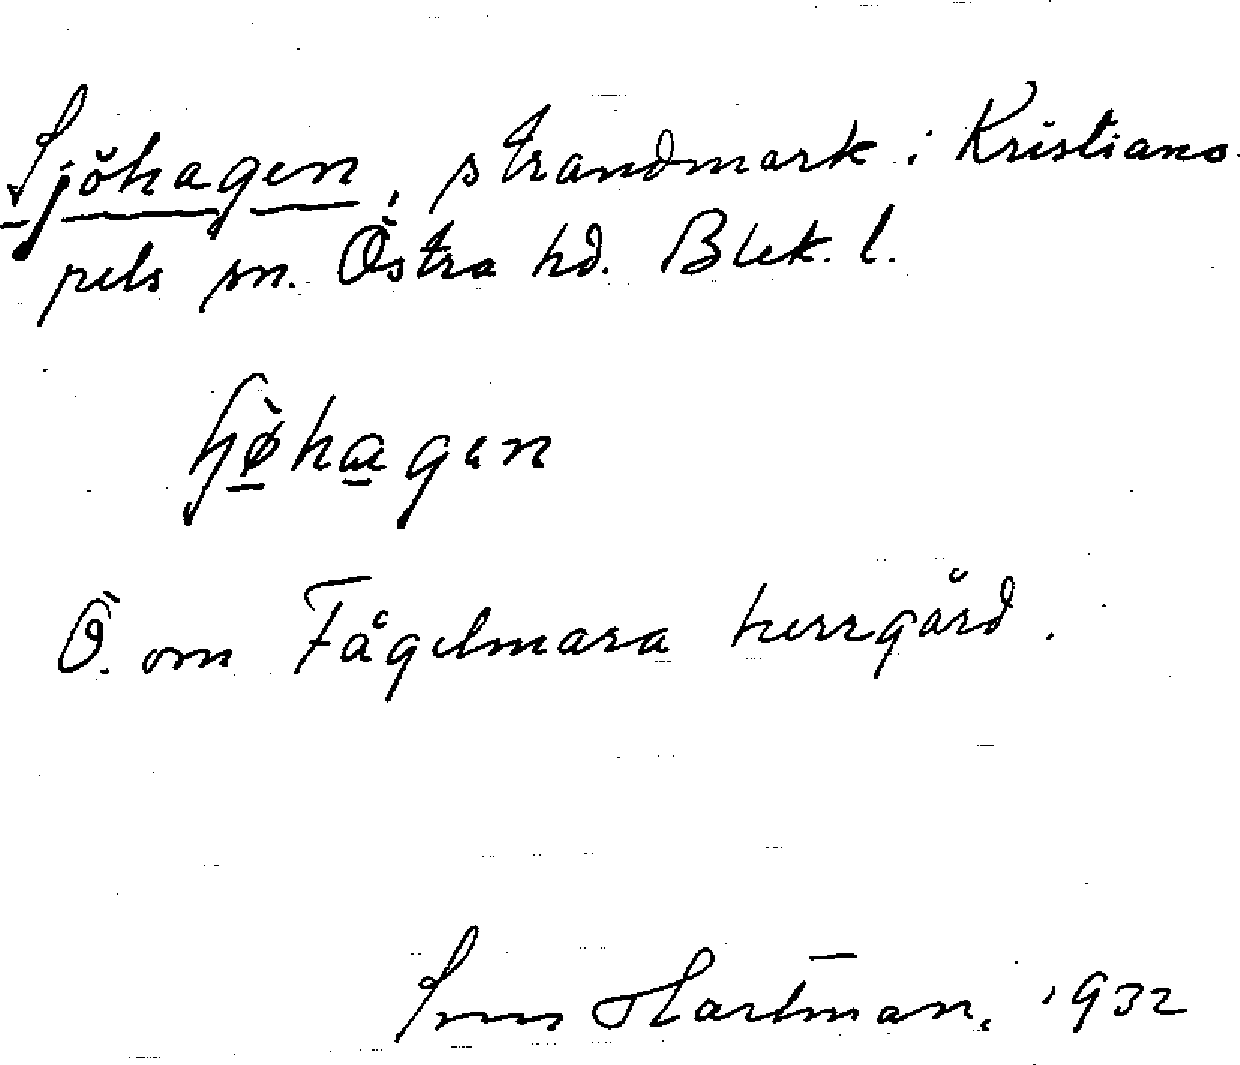 Sjöhagen, strandmark i Kristiano-
pels sn. Östra hd. Blek. l.
Ö. om Fågelmara herrgård.
Hartman, 1932